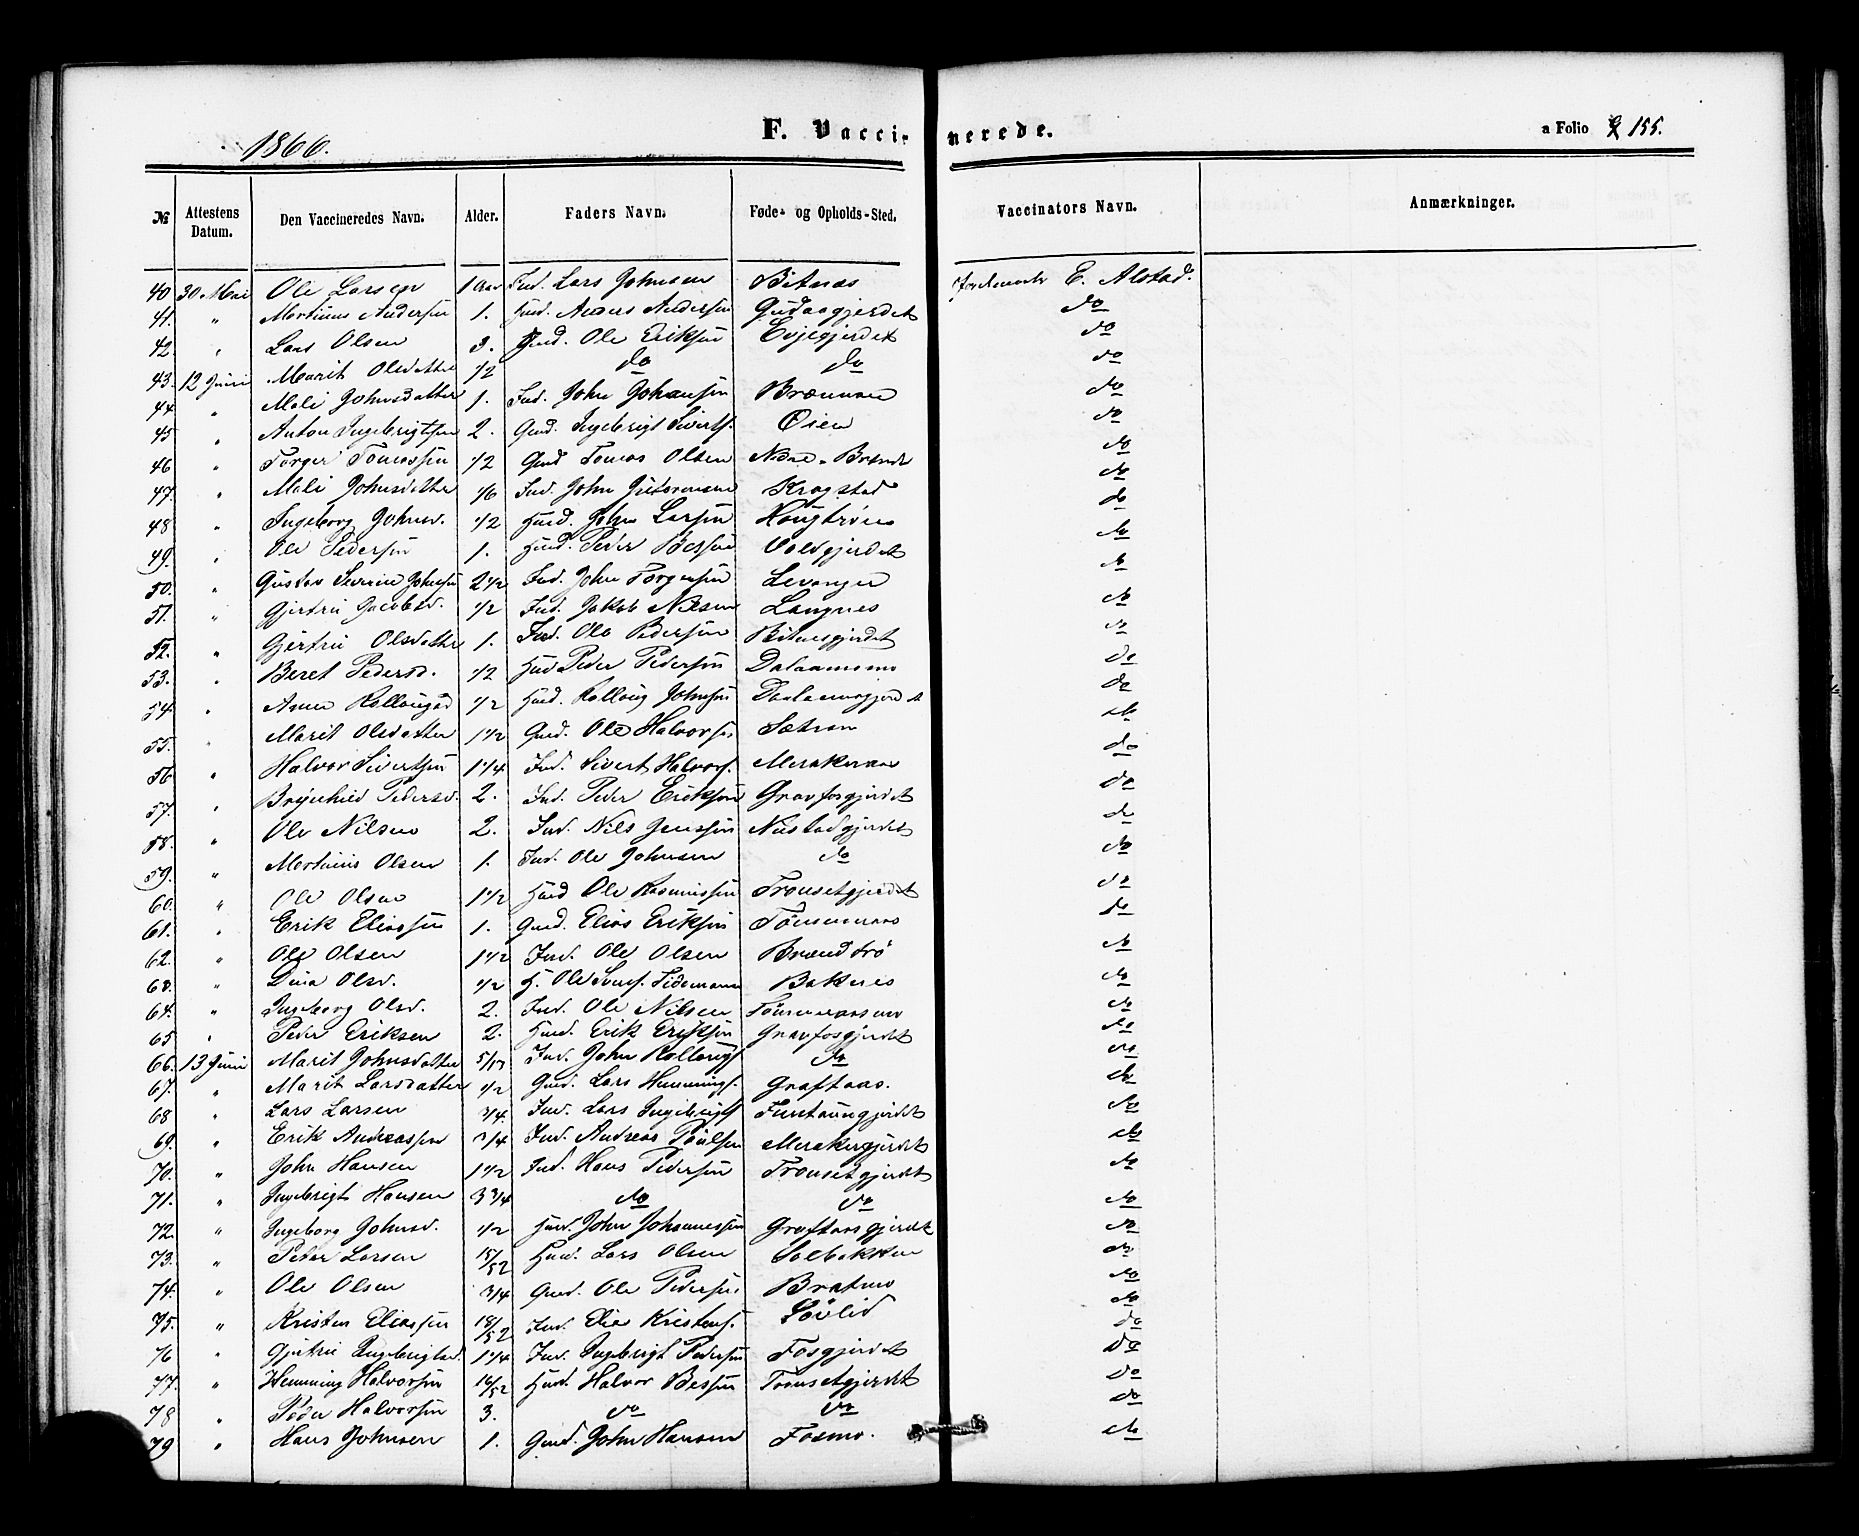 1866.
F. Vaccinerede.
a Folio 155.
№ Attestens Datum. Den Vaccineredes Navn. Alder. Faders Navn. Føde- og Opholds-Sted. Vaccinators Navn. Anmærkninger.
40 30 Mai Ole Larsen 1 Aar Ind. Lars Johnsen Bitnæs E. Alstad.
41. " Martinus Andersen 1. Huusd. Anders Andersen Gudaagjerdet do
42 " Lars Olsen 3. Gmd. Ole Eriksen Evjegjerdet do
43. 12 Juni Marit Olsdatter 1/2 do do do
44 " Mali Johnsdatter 1. Ind. John Johansen Brænnaae do
45 " Anton Ingebrigtsen 2. Gmd. Ingebrigt Siverts. Øien do
46 " Torger Tomassen 1/2 Gmd Tomas Olsen Nedre Brænde do
47. " Mali Johnsdatter 1/6 Ind. John Krogstad do
48 " Ingeborg Johnsd. 1/2 Huusd. John Larsen do
49. " Ole Pedersen 1. Huusd. Peder Voldgjerdet do
50. " Gustav Johnsen 2 1/2 Ind. John Torgersen Levanger do
51. " Gjertru Jacobsd. 1/2 Ind. Jakob Nilsen Langnes do
52. " Gjertru Olsdatter 1. Ind. Ole Pedersen Bitnesgjerdet do
53. " Beret Pedersd. 1/2 Huusd Peder Pedersen Dalaamo do
54. " Rollougsd 1/2 Huusd. Rolloug Johnsen do
55. " Marit Olsdatter 1 1/2 Gmd. Ole Halvorsen Sætran do
56 " Halvor Sivertsen 1 1/4 Ind. Sivert Halvors. do
57. " Brynhild Pedersd. 2. Ind. Peder Eriksen Gravfosgjerdet do
58. " Ole Nilsen 2. Ind. Nils Jenssen Nustadgjerdet do
59. " Martinus Olsen 1. Ind. Ole Johnsen do do
60. " Ole Olsen 1 1/2 Huusd Ole Rasmussen Tronsetgjerdet do
61. " Erik Eliassen 1. Gmd. Elias Eriksen do
62. " Ole Olsen 1 1/2 Ind. Ole Olsen do
63. " Dina Olsd. 1/2 H. Ole Tidemann Bakenes do
64. " Ingeborg Olsd. 2. Ind. Ole Nilsen do
65 " Peder Eriksen 2. Huusd. Erik Eriksen Gravfosgjerdet do
66. 13 Juni Marit Johnsdatter Ind. John Rollougs. do do
67. " Marit Larsdatter 1/2 Gmd. Lars Hemmings. Graftaas. do
68 " Lars Larsen 3/4 Ind. Lars Ingebrigts. Funtaungjerdet do
69. " Erik Andreassen 3/4 Ind. Andreas Poulsen Merakergjerdet do
70. " John Hansen 1 1/2 Ind. Hans Pedersen Tronsetgjerdet do
71. " Ingebrigt Hansen 3 3/4 do do do
72. " Ingeborg Johnsd. 1/2 Huusd. John Johannessen Graftaasgjerdet do
73. " Peter Larsen 15/52 Huusd. Lars Olsen Solbakken do
74. " Ole Olsen 3/4 Gmd. Ole Pedersen Bratmo do
75. " Kristen Eliassen 18/52 Ind. Elias Kristens. do
76 " Gjertru Ingebrigtsd. 1 1/4 Ind. Ingebrigt Pedersen Fosgjerdet do
77. " Hemming Halvorsen 16/52 Huusd. Halvor Bessen Tronsetgjerdet do
78 " Peder Halvorsen 3. do do do
79 " Hans Johnsen 1. Gmd. John Hansen Fosmo. do